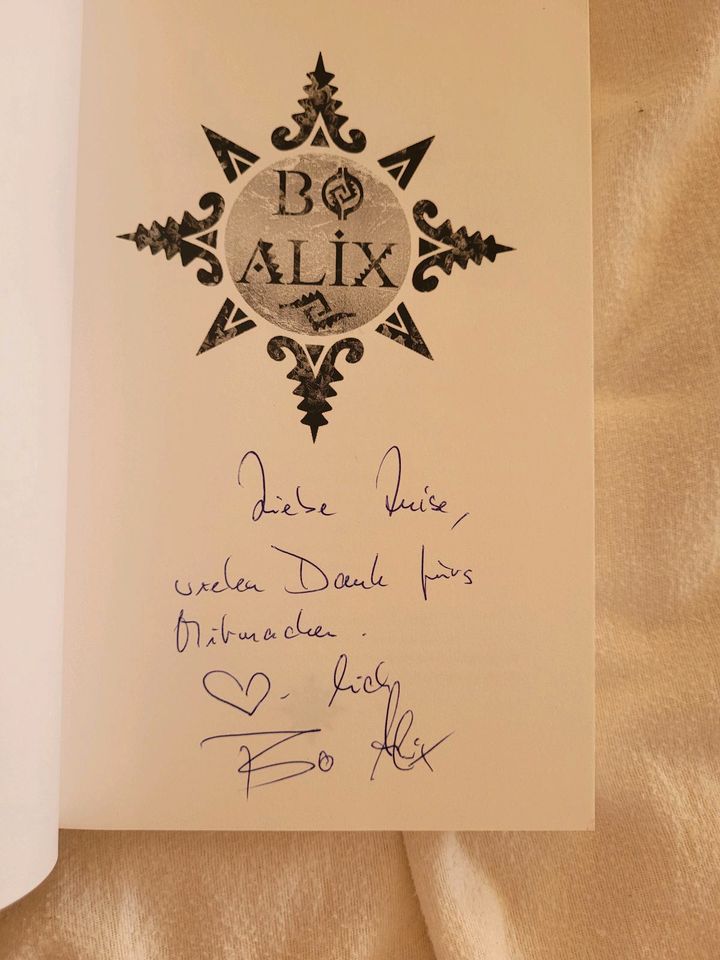 BO
ALIX
Liebe Luise,
vielen Dank fürs
Mitmachen.
♡-lich
Bo Alix